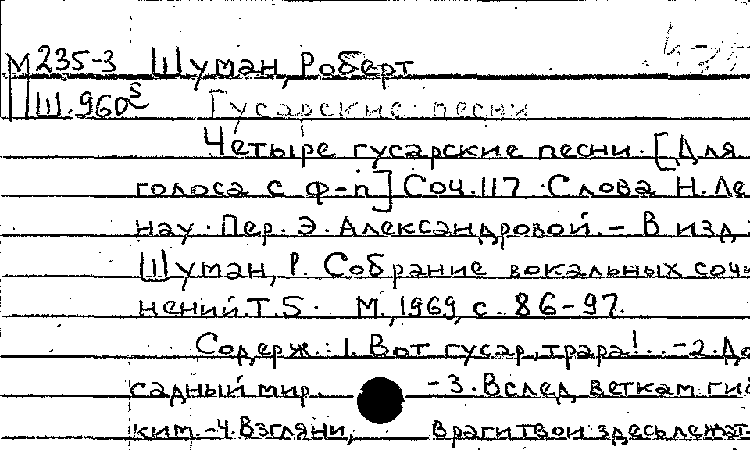 М 235-3 Шуман, Роберт
Ш.960 s
Гусарские песни
Четыре гусарские песни. [Для
голоса с ф-п] Соч.117. Слова Н. Ле
нау. Пер. Э. Александровой. - В изд
Шуман, Р. Собрание вокальных сочи
нений. Т.5. М., 1969, с. 86-97.
Содерж.: 1. Вот гусар, трара!.. -2. До
садный мир. -3. Вслед веткам гиб
ким. -4. Взгляни, враги твои здесь лежат.